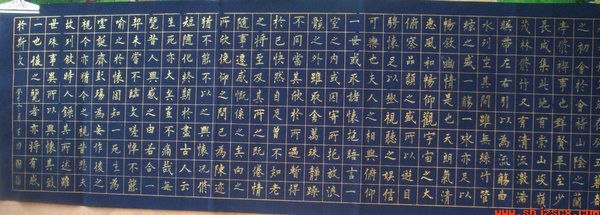 之初會於會稽山陰之蘭
亭修禊事也羣賢畢至少
長咸集此地有崇山峻嶺
茂林修竹又有清流激湍
映帶左右引以為流觴曲
水列坐其間雖無絲竹管
絃之盛一觴一詠亦足以
暢敘幽情是日也天朗氣清
惠風和暢仰觀宇宙之大
俯察品類之盛所以遊目
騁懷足以極視聽之娛信
可樂也夫人之相與俯仰
一世或取諸懷抱晤言一
室之內或因寄所託放浪形
骸之外雖取舍萬殊靜躁
不同當其欣於所遇暫得
於己快然自足不知老
之將至及其所之既倦情
隨事遷感慨係之矣向之
所欣俛仰之間已為陳迹
猶不能不以之興懷況修
短隨化終期於盡古人云
死生亦大矣豈不痛哉每
覽昔人興感之由若合一
契未嘗不臨文嗟悼不能
喻之於懷固知一死生為
虛誕齊彭殤為妄作後之
視今亦猶今之視昔悲夫
故列敘時人錄其所述雖
世殊事異所以興懷其致
一也後之覽者亦將有感
於斯文